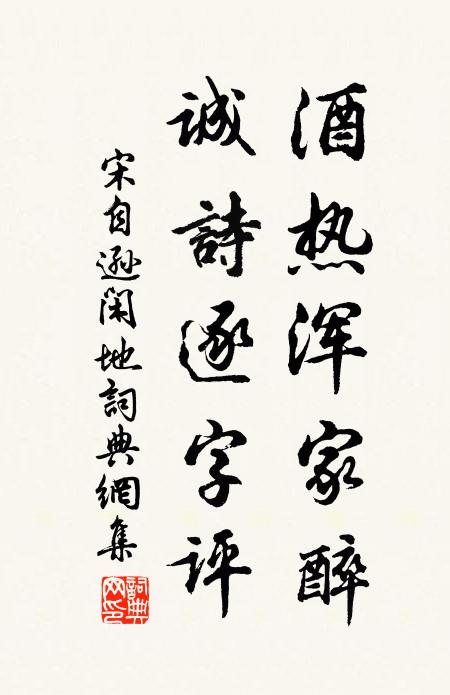 酒热浑家醉
誠詩逐字评
宋自遜閑地詞典網集
詞典
网印